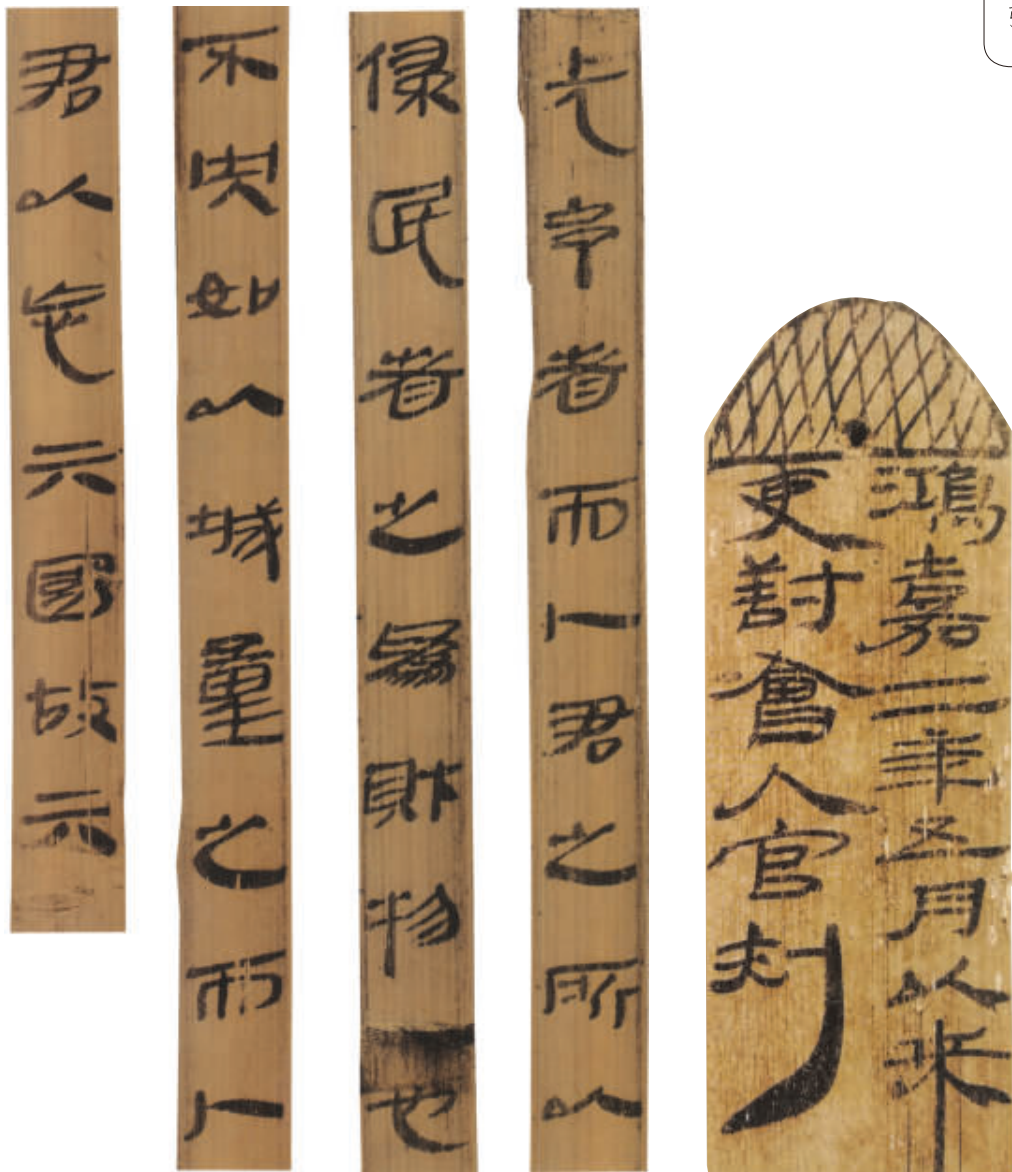 鴻嘉二年五月以來
吏對會入官刺
者而人君之所以
民者之爲財物也
不如以城量之而人
君以六國故六